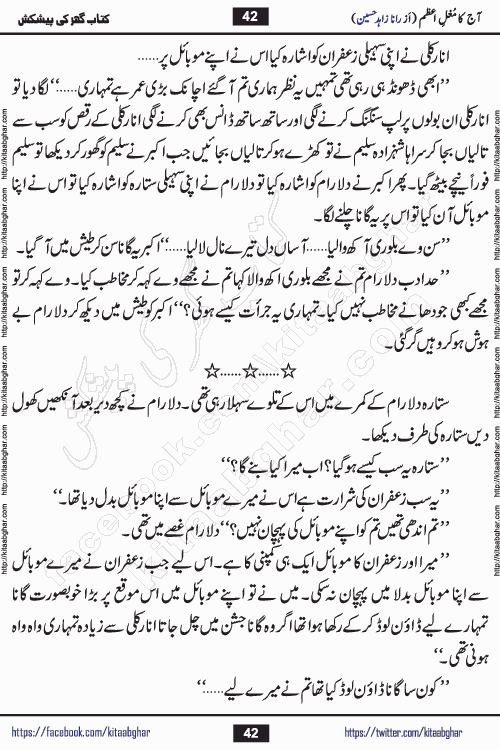 آج کا مُغلِ اعظم (از رانا زاہد حسین)
42
کتاب گھر کی پیشکش
انارکلی نے اپنی سہیلی زعفران کو اشارہ کیا اس نے اپنے موبائل پر......
”ابھی ڈھونڈ ہی رہی تھی تمہیں یہ نظر ہماری تم آ گئے اچانک بڑی عمر ہے تمہاری......“ لگا دیا تو
انارکلی ان بولوں پر لپ سنکنگ کرنے لگی اور ساتھ ساتھ ڈانس بھی کرنے لگی انارکلی کے رقص کو سب سے
تالیاں بجا کر سراہا شہزادہ سلیم نے تو کھڑے ہو کر تالیاں بجائیں جب اکبر نے سلیم کو گھور کر دیکھا تو سلیم
فوراً نیچے بیٹھ گیا۔ پھر اکبر نے دلارام کو اشارہ کیا تو دلارام نے اپنی سہیلی ستارہ کو اشارہ کیا تو اس نے اپنا
موبائل آن کیا تو اس پر یہ گانا چلنے لگا۔
”سن وے بلوری آکھ والیا......آساں دل تیرے نال لا لیا......“ اکبر یہ گانا سن کر طیش میں آ گیا۔
”حد ادب دلارام تم نے مجھے بلوری اکھ والا کہا تم نے مجھے وے کہہ کر مخاطب کیا۔ وے کہہ کر تو
مجھے کبھی جودھا نے مخاطب نہیں کیا۔ تمہاری یہ جرأت کیسے ہوئی؟“ اکبر کو طیش میں دیکھ کر دلارام بے
ہوش ہو کر وہیں گر گئی۔
☆......☆......☆
ستارہ دلارام کے کمرے میں اس کے تلوے سہلا رہی تھی۔ دلارام نے کچھ دیر بعد آنکھیں کھول
دیں ستارہ کی طرف دیکھا۔
”ستارہ یہ سب کیسے ہو گیا؟ اب میرا کیا بنے گا؟“
”یہ سب زعفران کی شرارت ہے اس نے میرے موبائل سے اپنا موبائل بدل دیا تھا۔“
”تم اندھی تھیں تم کو اپنے موبائل کی پہچان نہیں؟“ دلارام غصے میں تھی۔
”میرا اور زعفران کا موبائل ایک ہی کمپنی کا ہے۔ اس لیے جب زعفران نے میرے موبائل
سے اپنا موبائل بدلا میں پہچان نہ سکی۔ میں نے تو اپنے موبائل میں اس موقع پر بڑا خوبصورت گانا
تمہارے لیے ڈاؤن لوڈ کر کے رکھا ہوا تھا اگر وہ گانا جشن میں چل جاتا انارکلی سے زیادہ تمہاری واہ واہ
ہونی تھی۔“
”کون سا گانا ڈاؤن لوڈ کیا تھا تم نے میرے لیے......“
https://facebook.com/kitaabghar
42
https://twitter.com/kitaabghar
http://kitaabghar.com http://kitaabghar.com http://kitaabghar.com http://kitaabghar.com http://kitaabghar.com
http://kitaabghar.com http://kitaabghar.com http://kitaabghar.com http://kitaabghar.com http://kitaabghar.com
کتاب گھر کی پیشکش
kitaabghar.com
facebook.com/kitaabghar